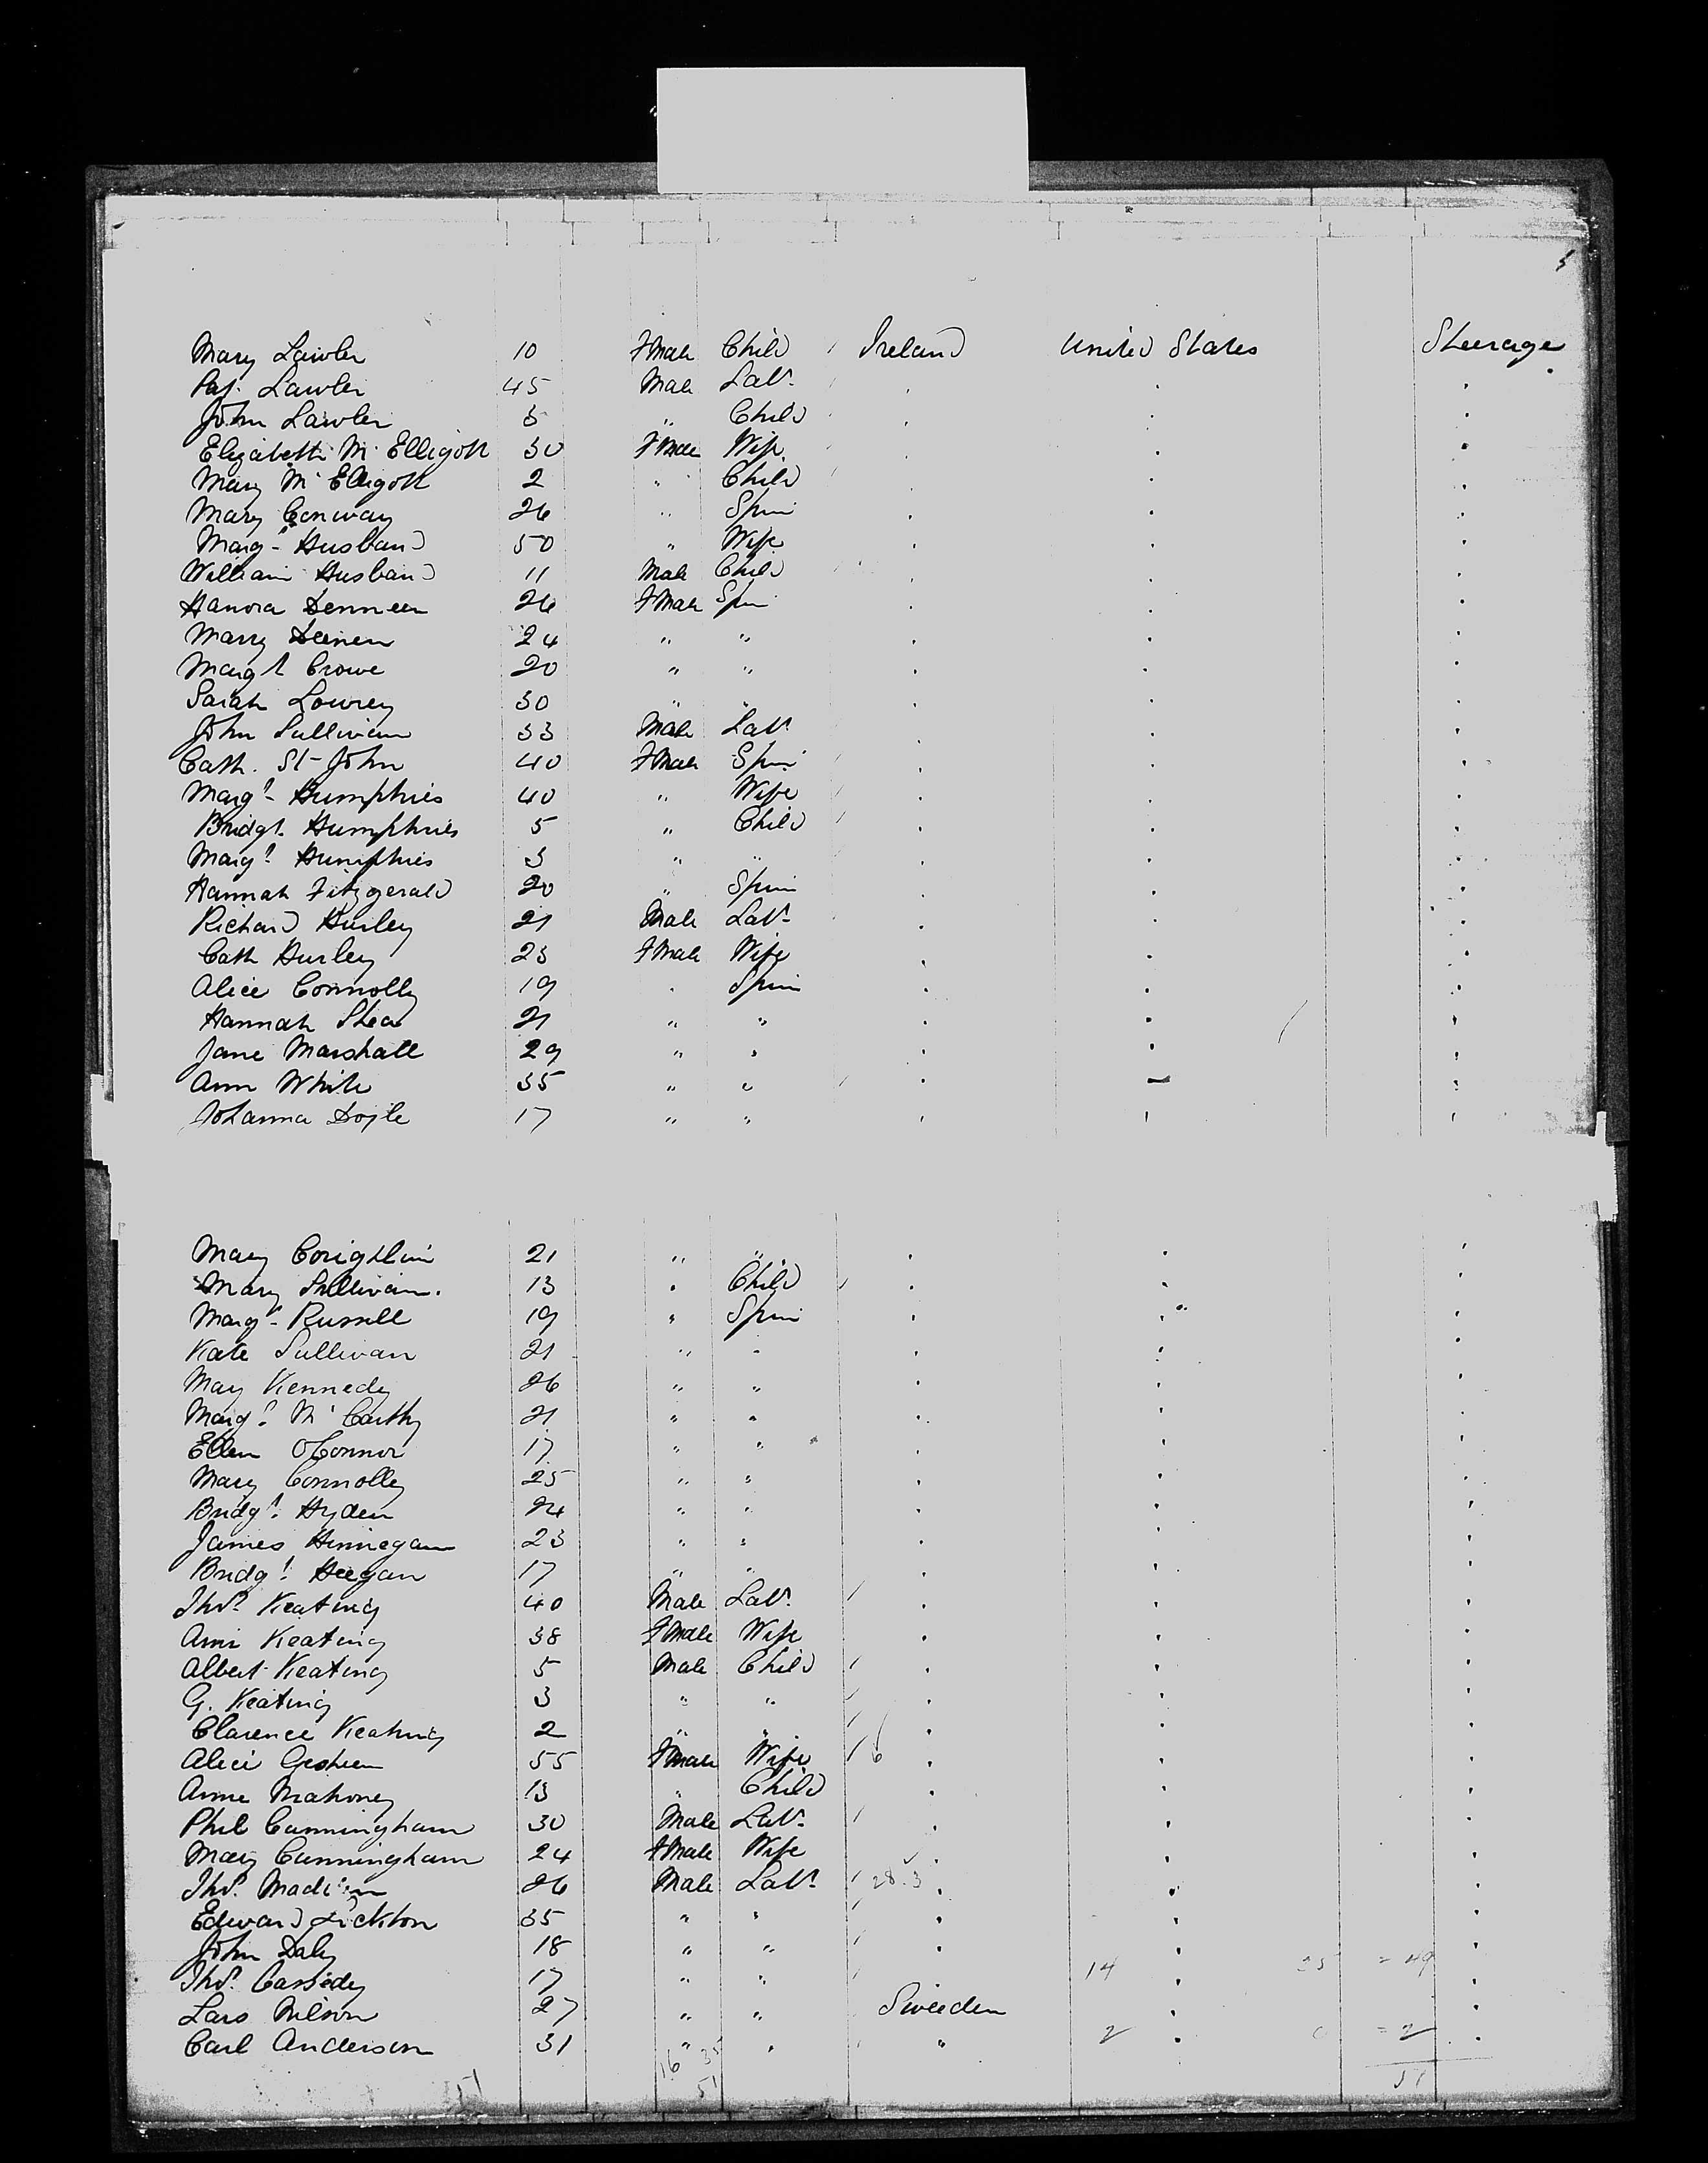 Mary Lawler 10 Fmale Child Ireland United States Steerage
Pat. Lawler 45 Male Labr
John Lawler 3 " Child
Elizabeth McElligott 30 Fmale Wife
Mary McElligott 2 " Child
Mary Conway 26 " Spin
Margt Husband 50 " Wife
William Husband 11 Male Child
Hanora Denneen 26 Fmale Spin
Mary Deenen 24 " "
Margt Crowe 20 " "
Sarah Lowrey 30 " "
John Sullivan 33 Male Labr
Cath. St-John 40 Fmale Spin
Margt Humphries 40 " Wife
Bridgt Humphries 5 " Child
Margt Humphries 3 " "
Hannah Fitzgerald 20 " Spin
Richard Hurley 21 Male Labr
Cath Hurley 23 Fmale Wife
Alice Connolly 19 " Spin
Hannah Shea 21 " "
Jane Marshall 29 " "
Ann White 35 " "
Johanna Doyle 17 " "
Mary Coughlin 21 " "
Mary Sullivan. 13 " Child
Margt Russell 19 " Spin
Kate Sullivan 21 " "
May Kennedy 26 " "
Margt McCarthy 21 " "
Ellen OConnor 17 " "
Mary Connolly 25 " "
Bridgt Hyden 24 " "
James Hinnegan 23 " "
Bridgt Heegan 17 " "
Thos Keating 40 Male Labr
Ann Keating 38 Fmale Wife
Albert Keating 5 Male Child
G. Keating 3 " "
Clarence Keating 2 " "
Alice 55 Fmale Wife 6
Anne Mahoney 13 " Child
Phil Cunningham 30 Male Labr
Mary Cunningham 24 Fmale Wife
Thos. Madden 26 Male Labr 28.3
Edward 35 " "
John Daly 18 " "
Thos. Cassedy 17 " " 14 35 = 49
Lars Nilson 27 " " Sweeden
Carl Anderson 31 " " " 2 0 = 2
16 35
51 51 51